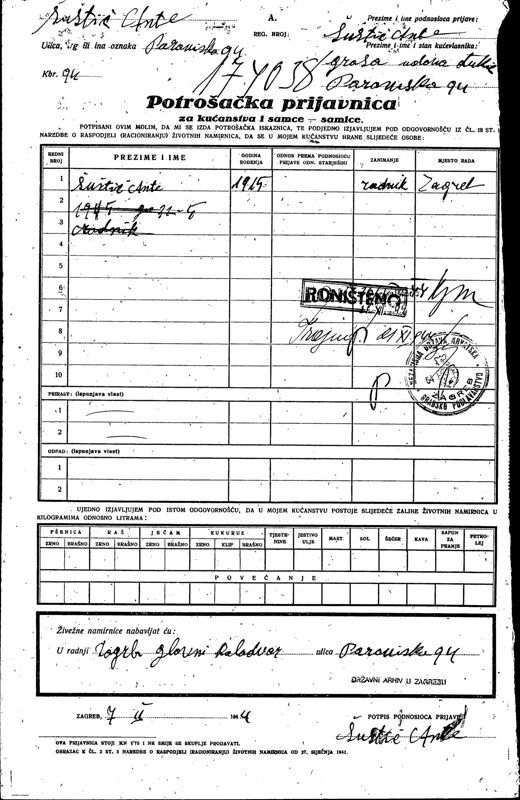 Šuštić Ante
A.
REG. BROJ:
Prezime i ime podnosioca prijave:
Šuštić Ante
Ulica, trg ili ina oznaka Paromiska 94
Prezime i ime i stan kućevlasnika:
Kbr. 94
174038
Paromiska 94
Potrošačka prijavnica
za kućanstva i samce — samice.
POTPISANI OVIM MOLIM, DA MI SE IZDA POTROŠAČKA ISKAZNICA, TE PODJEDNO IZJAVLJUJEM POD ODGOVORNOŠĆU IZ ČL. 18 ST. 1
NAREDBE O RASPODJELI (RACIONIRANJU) ŽIVOTNIH NAMIRNICA, DA SE U MOJEM KUĆANSTVU HRANE SLIJEDEĆE OSOBE:
REDNI BROJ PREZIME I IME GODINA ROĐENJA ODNOS PREMA PODNOSIOCU PRIJAVE ODN. STARJEŠINI ZANIMANJE MJESTO RADA
1 Šuštić Ante 1915 radnik Zagreb
2
3 radnik
4
5
6
PONIŠTENO
7
8
9
NEZAVISNA DRŽAVA HRVATSKA
GRADSKO POGLAVARSTVO
ZAGREB
10
PRIRAST: (ispunjava vlast)
1
2
OTPAD: (ispunjava vlast)
1
2
UJEDNO IZJAVLJUJEM POD ISTOM ODGOVORNOŠĆU, DA U MOJEM KUĆANSTVU POSTOJE SLIJEDEĆE ZALIHE ŽIVOTNIH NAMIRNICA U
KILOGRAMIMA ODNOSNO LITRAMA:
PŠENICA RAŽ JEČAM KUKURUZ TJESTENINE JESTIVO ULJE MAST SOL ŠEĆER KAVA SAPUN ZA PRANJE PETROLEJ
ZRNO BRAŠNO ZRNO BRAŠNO ZRNO BRAŠNO ZRNO KLIP BRAŠNO
POVEĆANJE
Živežne namirnice nabavljat ću:
U radnji Zagreb glavni kolodvor ulica Paromiska 94
DRŽAVNI ARHIV U ZAGREBU
ZAGREB, 7 II 1944
POTPIS PODNOSIOCA PRIJAVE
Šuštić Ante
OVA PRIJAVNICA STOJI KN 1'75 I NE SMIJE SE SKUPLJE PRODAVATI.
OBRAZAC K ČL. 2 ST. 3 NAREDBE O RASPODJELI (RACIONIRANJU) ŽIVOTNIH NAMIRNICA OD 27. SIJEČNJA 1941.